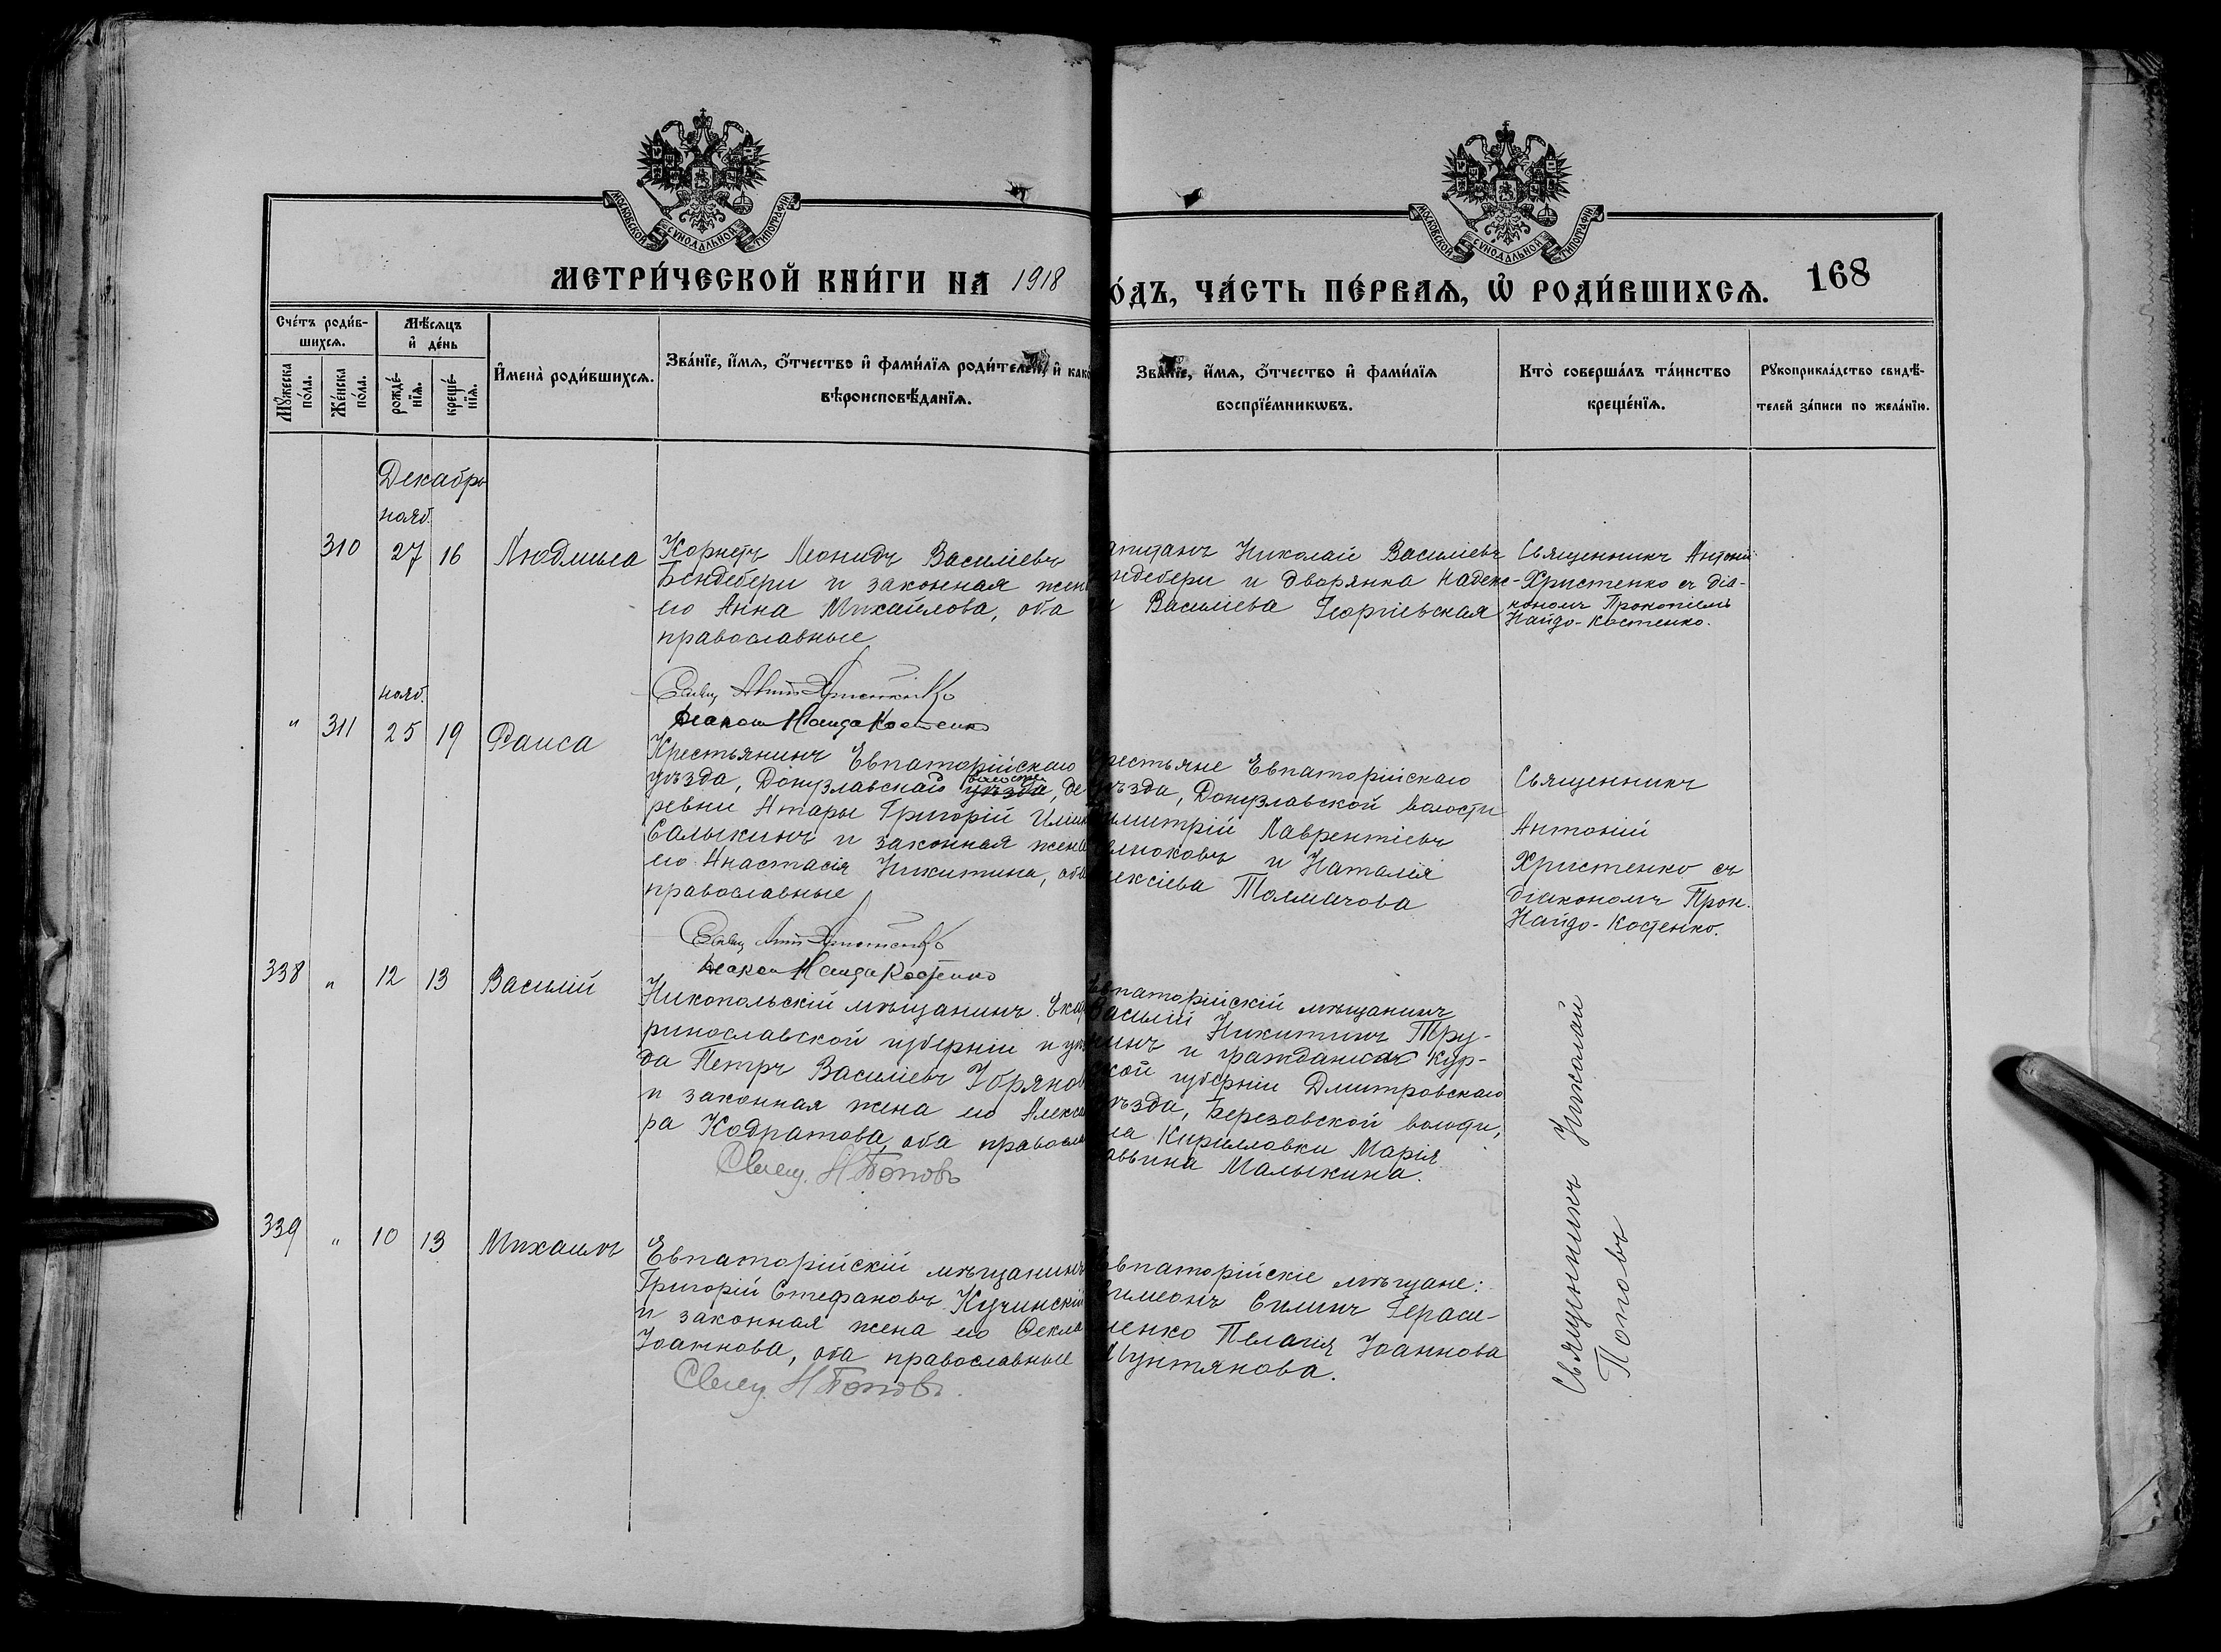 МОСКОВСКОЙ СѴНОДАЛЬНОЙ ТИПОГРАФІИ
МОСКОВСКОЙ СѴНОДАЛЬНОЙ ТИПОГРАФІИ
МЕТРИ́ЧЕСКОЙ КНИ́ГИ НА 1918
О́ДЪ, ЧА́СТЬ ПЕ́РВАѦ, Ѡ҆ РОДИ́ВШИХСѦ. 168
Сче́тъ роди́в-
шихсѧ.
Мꙋ́жеска
по́ла.
Же́нска
по́ла.
Мѣ́сѧцъ
и҆ де́нь
рожде́-
нїѧ.
креще́-
нїѧ.
И҆мена̀ роди́вшихсѧ.
Зва́нїе, и҆́мѧ, ѻ҆́тчество и҆ фами́лїѧ роди́телей, и҆ како
вѣроисповѣ́данїѧ.
Зва́нїе, и҆́мѧ, ѻ҆́тчество и҆ фами́лїѧ
воспрїе́мникѡвъ.
Кто̀ соверша́лъ та́инство
креще́нїѧ.
Рꙋкоприкла́дство свидѣ́-
телей за́писи по жела́нїю.
Декабрь
нояб.
310 27 16 Людмила
Корнетъ Леонидъ Василіевъ
Бендебери и законная жена
его Анна Михайлова, оба
православные
апитанъ Николай Василіевъ
ндебери и дворянка Надеж-
Василіева Георгіевская
Священникъ Антоній
Христенко съ діа-
кономъ Прокопіемъ
Найдо-Костенко.
Діакон Найда Костенко
нояб.
" 311 25 19 Раиса
Крестьянинъ Евпаторійскаго
уѣзда, Донузлавскаго уѣзда, де
волости
ревни Атары Григорій Илиинъ
Салыкинъ и законная жена
его Анастасія Никитина, оба
православные
рестьяне Евпаторійскаго
уѣзда, Донузлавской волости
имитрій Лаврентіевъ
и Наталія
ексіева Толмачова
Священникъ
Антоній
Христенко съ
діакономъ Прок.
Найдо-Костенко.
Діакон Найда Костенко
338 " 12 13 Василій
Никопольскій мѣщанинъ Ека
ринославской губерніи и уѣз
да Петръ Василіевъ
и законная жена его Алекса
ра Кодратова, оба правосла
Свящ. Н Поповъ
Евпаторійскій мѣщанинъ
Василій Никитинъ Тру-
нинъ и гражданка Кур-
ской губерніи Дмитровскаго
уѣзда, Березовской волости,
ла Кирилловки Марія
аввина Малыкина.
Священникъ Николай
Поповъ
339 " 10 13 Михаилъ
Евпаторійскій мѣщанинъ
Григорій Стефановъ Кучинскій
и законная жена его Ѳекла
Іоаннова, оба православные
Свящ. Н Поповъ.
Евпаторійскіе мѣщане:
Симеонъ Силинъ Гераси-
менко Пелагія Іоаннова
Мунтянова.